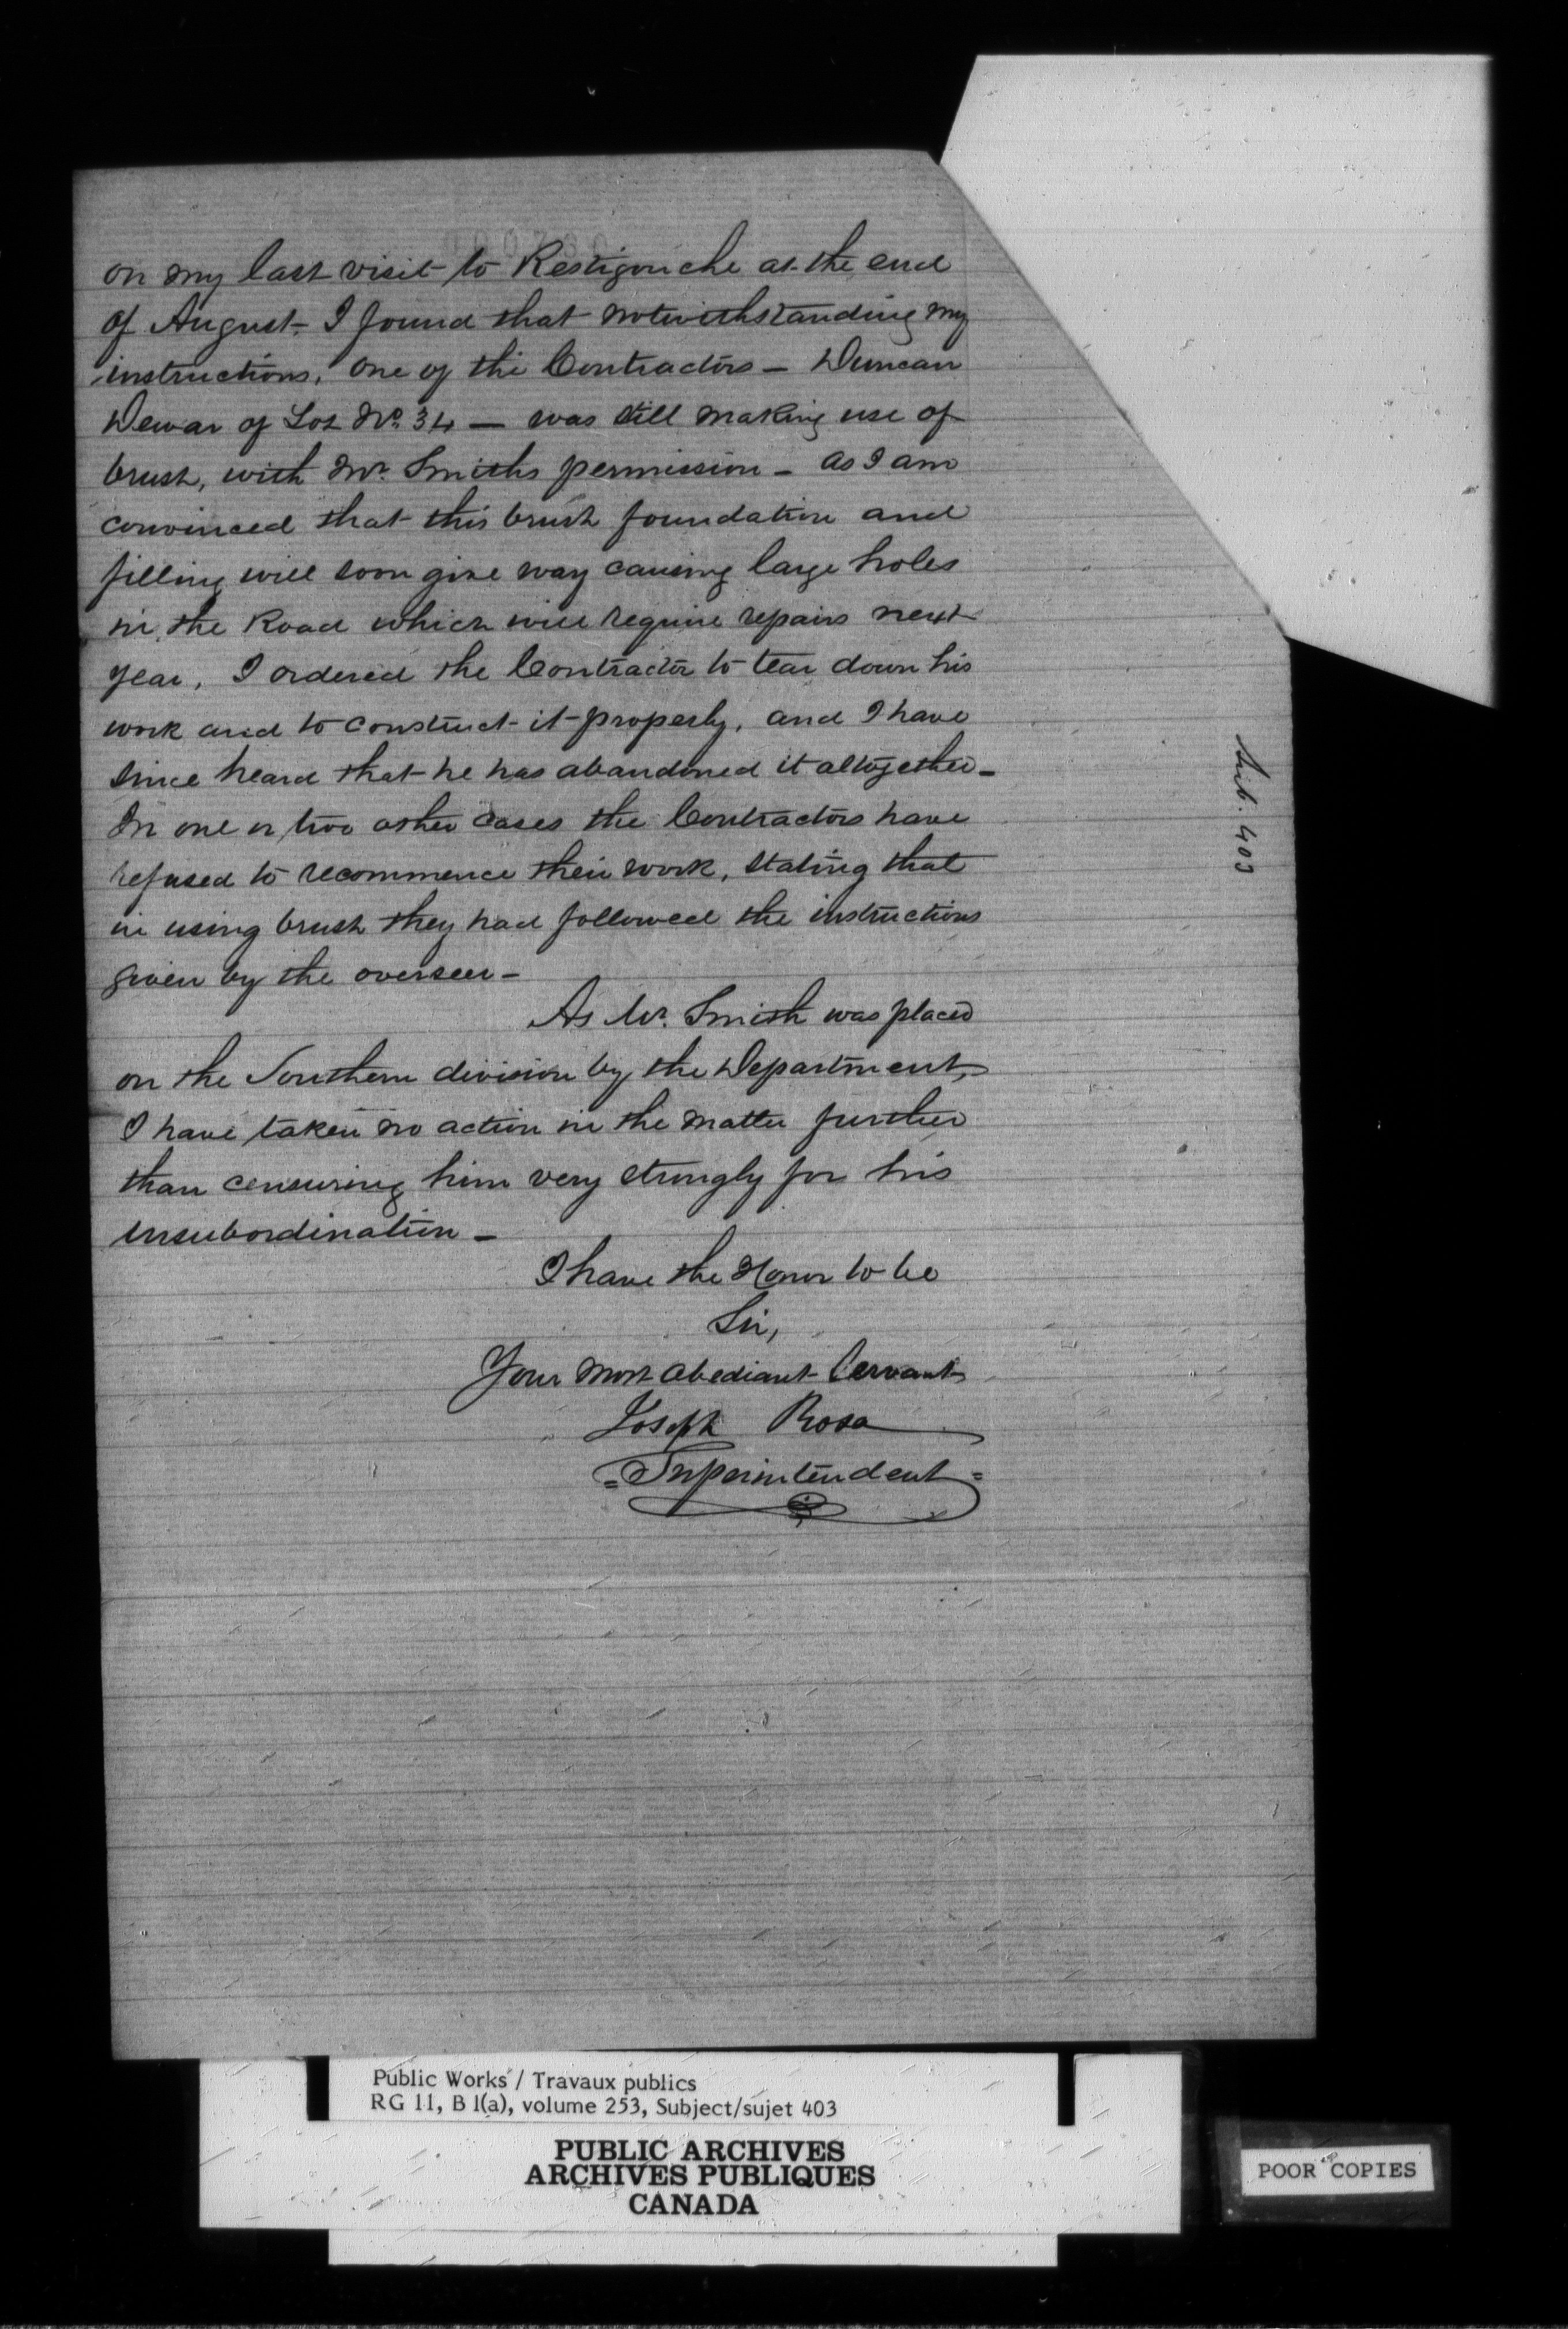 on my last visit to Restigouche at the end
of August I found that notwithstanding my
instructions, one of the Contractors – Duncan
Dewar of Lot No. 34 — was still making use of
brush, with Mr. Smiths permission – as I am
convinced that this brush foundation and
filling will soon give way causing large holes
in the Road which will require repairs next
year, I ordered the Contractor to tear down his
work and to construct it properly, and I have
since heard that he has abandoned it altogether –
In one or two other cases the Contractors have
refused to recommence their work, stating that
in using brush they had followed the instructions
given by the overseer –
As Mr. Smith was placed
on the Southern division by the Department,
I have taken no action in the matter further
than censuring him very strongly for his
insubordination –
I have the Honor to be
Sir,
Your most obediant Servant
Joseph Rosa
= Superintendent =
Sub. 403
Public Works / Travaux publics
RG 11, B 1(a), volume 253, Subject/sujet 403
PUBLIC ARCHIVES
ARCHIVES PUBLIQUES
CANADA
POOR COPIES